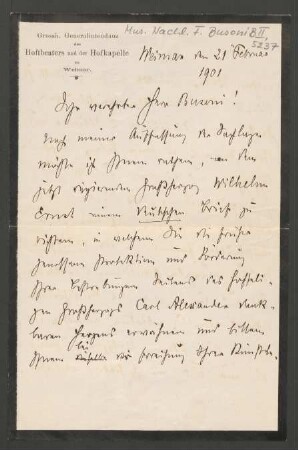 Grossh. Generalintendanz
des
Hoftheaters und der Hofkapelle
in
Weimar.
Mus. Nachl. F. Busoni B II,
5237
Weimar den 21 Februar
1901
Sehr verehrter Herr Busoni!
Nach meiner Auffassung der Sachlage
möchte ich Ihnen rathen, an den
jetzt regierenden Großherzog Wilhelm
Ernst einen deutschen Brief zu
richten, in welchem Sie die früher
genossene Protektion und Förderung
Ihrer Bestrebungen Seitens des hochseli-
gen Großherzogs Carl Alexander dank-
baren Herzens erwähnen und bitten,
Ihnen bei die Erreichung Ihrer Künstle-